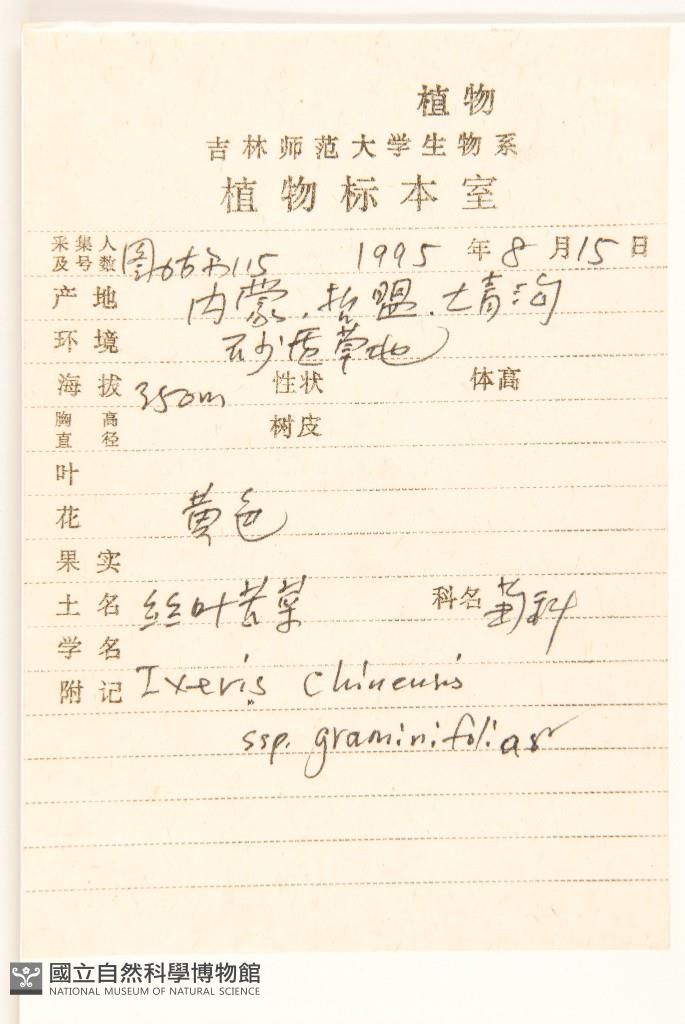 植物
吉林师范大学生物系
植物标本室
采集人
及号数 115 1995 年 8 月 15 日
产地 内蒙.哲盟.大青沟
环境 砂质草地
海拔 350m 性状 体高
胸高
直径 树皮
叶
花 黄色
果实
土名 丝叶苦菜 科名 菊科
学名
附记 Ixeris chinensis
ssp. graminifolia
國立自然科學博物館
NATIONAL MUSEUM OF NATURAL SCIENCE